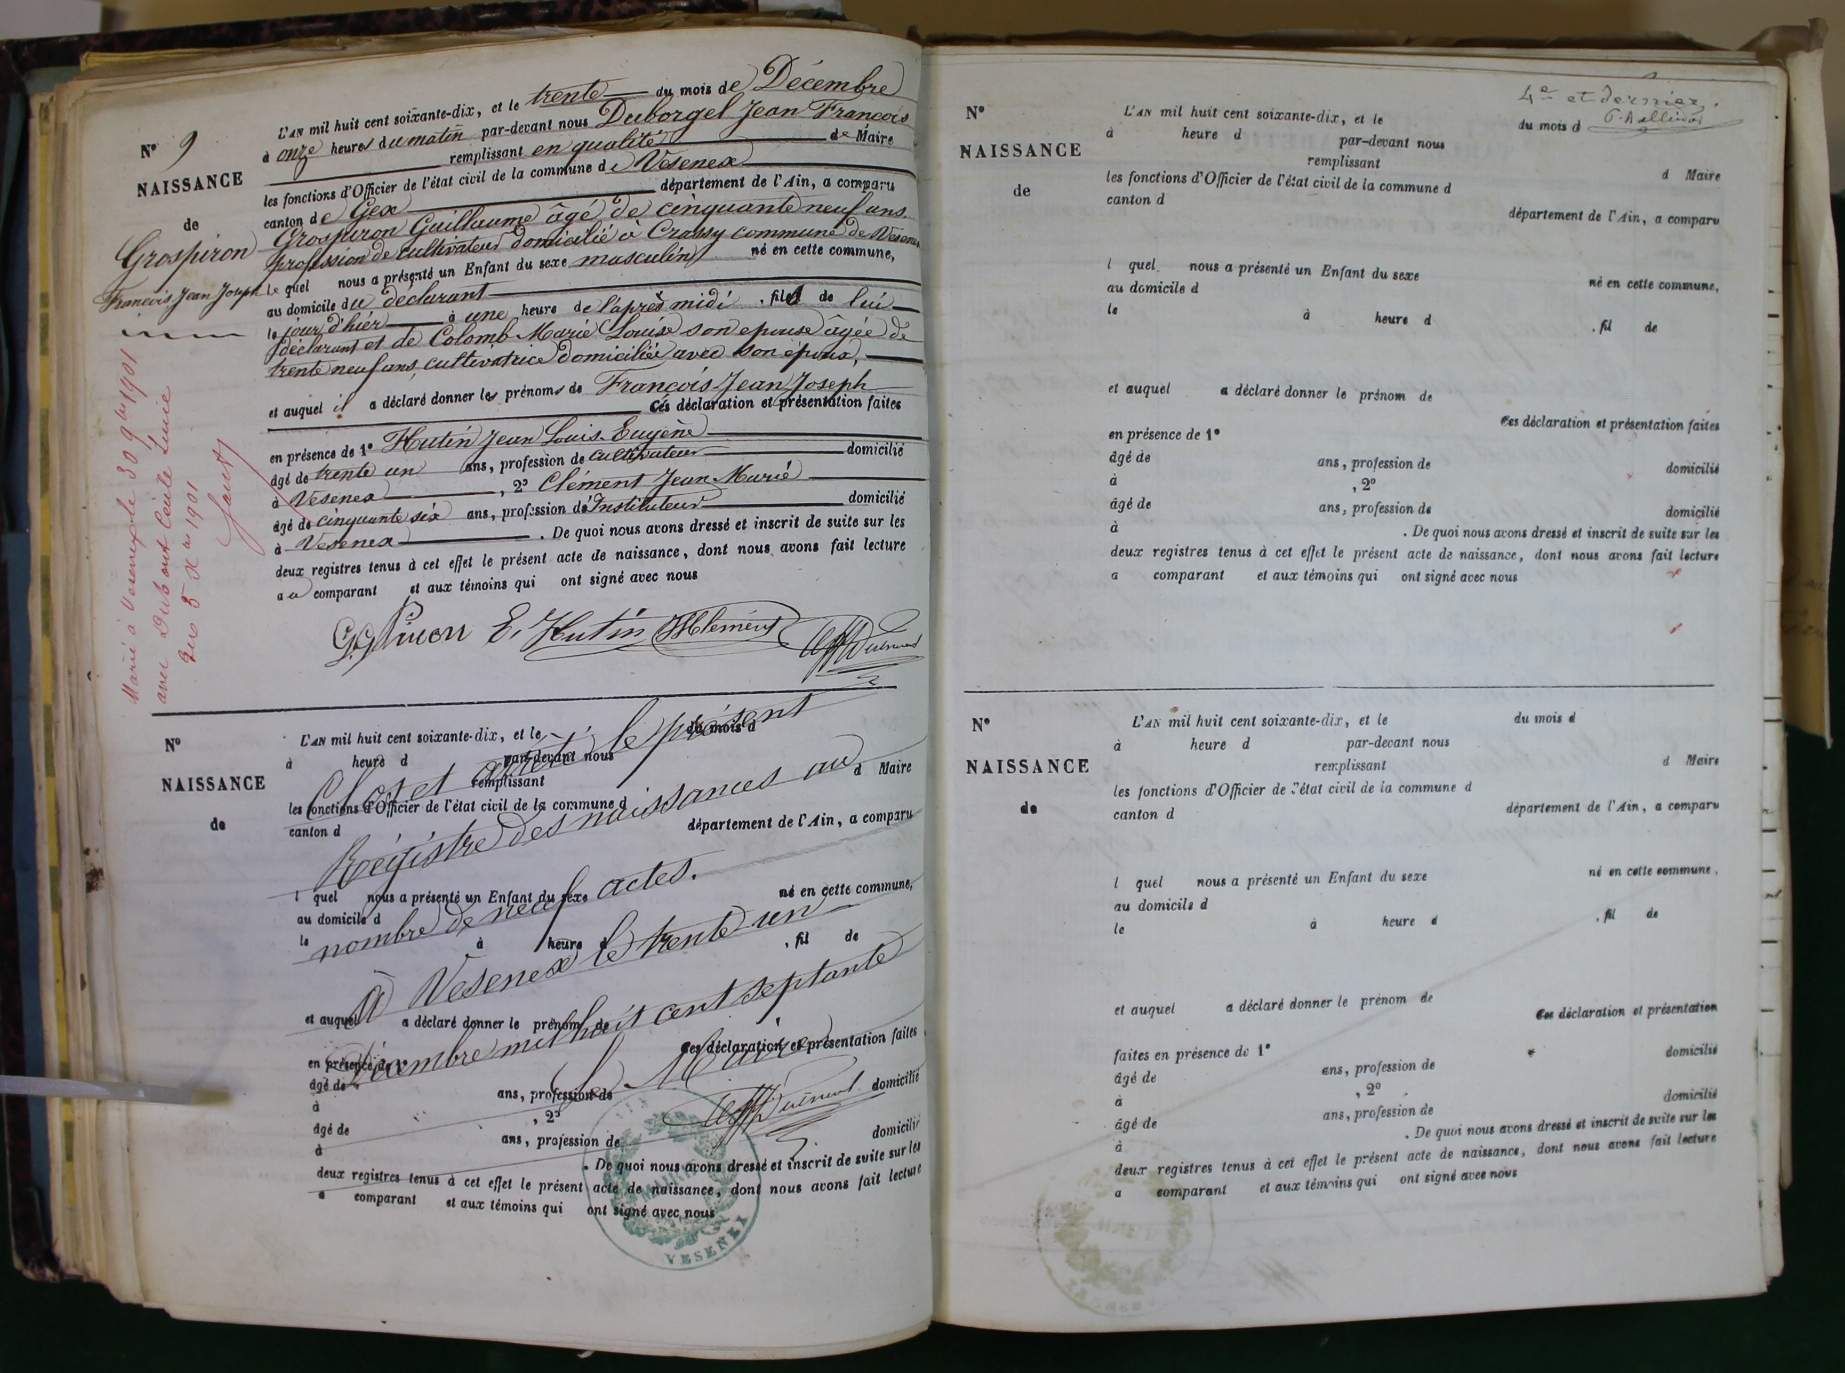 N° 9
NAISSANCE
de
Grospiron
Francois Jean Joseph
L'AN mil huit cent soixante-dix, et le trente du mois de Décembre
à onze heures du matin par-devant nous Duborgel Jean Francois
remplissant en qualité de Maire
les fonctions d'Officier de l'état civil de la commune de Vesenex
canton de Gex département de l'Ain, a comparu
Grospiron Guillaume âgé de cinquante neuf ans
profession de cultivateur domicilié à Crassy commune de Vesenex
le quel nous a présenté un Enfant du sexe masculin né en cette commune,
au domicile du déclarant
le jour d'hier à une heure de l'après midi . fils de lui
déclarant et de Colomb Marie Louise son epouse âgée de
trente neuf ans, cultivatrice domiciliée avec son époux,
et auquel il a déclaré donner les prénoms de Francois Jean Joseph
Ces déclaration et présentation faites
en présence de 1° Hutin Jean Louis Eugène
âgé de trente un ans, profession de cultivateur domicilié
à Vesenex , 2° Clément Jean Marie
âgé de cinquante six ans, profession de Instituteur domicilié
à Vesenex . De quoi nous avons dressé et inscrit de suite sur les
deux registres tenus à cet effet le présent acte de naissance, dont nous avons fait lecture
au comparant et aux témoins qui ont signé avec nous
E. Hutin JMClément
Marié à Vesenex le 30 9bre 1901
avec Dubout Cécile Lucie
5 Xbre 1901
N°
NAISSANCE
de
L'AN mil huit cent soixante-dix, et le du mois d
à heure d par-devant nous
remplissant d Maire
les fonctions d'Officier de l'état civil de la commune d
canton d département de l'Ain, a comparu
l quel nous a présenté un Enfant du sexe né en cette commune,
au domicile d
le à heure d . fil de
et auquel a déclaré donner le prénom de
Ces déclaration et présentation faites
en présence de 1°
âgé de ans, profession de domicilié
à , 2°
âgé de ans, profession de domicilié
à . De quoi nous avons dressé et inscrit de suite sur les
deux registres tenus à cet effet le présent acte de naissance, dont nous avons fait lecture
a comparant et aux témoins qui ont signé avec nous
Clos et arrêté le présent
Régistre des naissances au
nombre de neuf actes.
à Vesenex le trente un
Décembre mil huit cent septante
Le Maire
MAIRIE
VESENEX
4e et dernier.
N°
NAISSANCE
de
L'AN mil huit cent soixante-dix, et le du mois d
à heure d par-devant nous
remplissant d Maire
les fonctions d'Officier de l'état civil de la commune d
canton d département de l'Ain, a comparu
l quel nous a présenté un Enfant du sexe né en cette commune,
au domicile d
le à heure d . fil de
et auquel a déclaré donner le prénom de
Ces déclaration et présentation faites
en présence de 1°
âgé de ans, profession de domicilié
à , 2°
âgé de ans, profession de domicilié
à . De quoi nous avons dressé et inscrit de suite sur les
deux registres tenus à cet effet le présent acte de naissance, dont nous avons fait lecture
a comparant et aux témoins qui ont signé avec nous
N°
NAISSANCE
de
L'AN mil huit cent soixante-dix, et le du mois d
à heure d par-devant nous
remplissant d Maire
les fonctions d'Officier de l'état civil de la commune d
canton d département de l'Ain, a comparu
l quel nous a présenté un Enfant du sexe né en cette commune,
au domicile d
le à heure d . fil de
et auquel a déclaré donner le prénom de
Ces déclaration et présentation
faites en présence de 1° domicilié
âgé de ans, profession de
à , 2° domicilié
âgé de ans, profession de
à . De quoi nous avons dressé et inscrit de suite sur les
deux registres tenus à cet effet le présent acte de naissance, dont nous avons fait lecture
a comparant et aux témoins qui ont signé avec nous